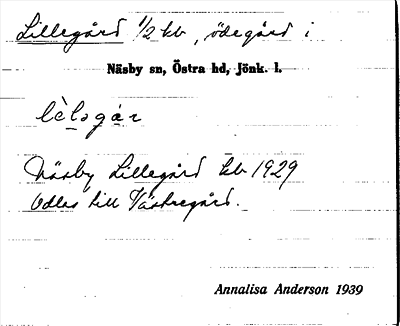 Lillegård 1/2 kb, ödegård i
Näsby sn, Östra hd, Jönk. l.
lèlsgár
Näsby Lillegård kb 1929
Odlas till Västregård.
Annalisa Anderson 1939